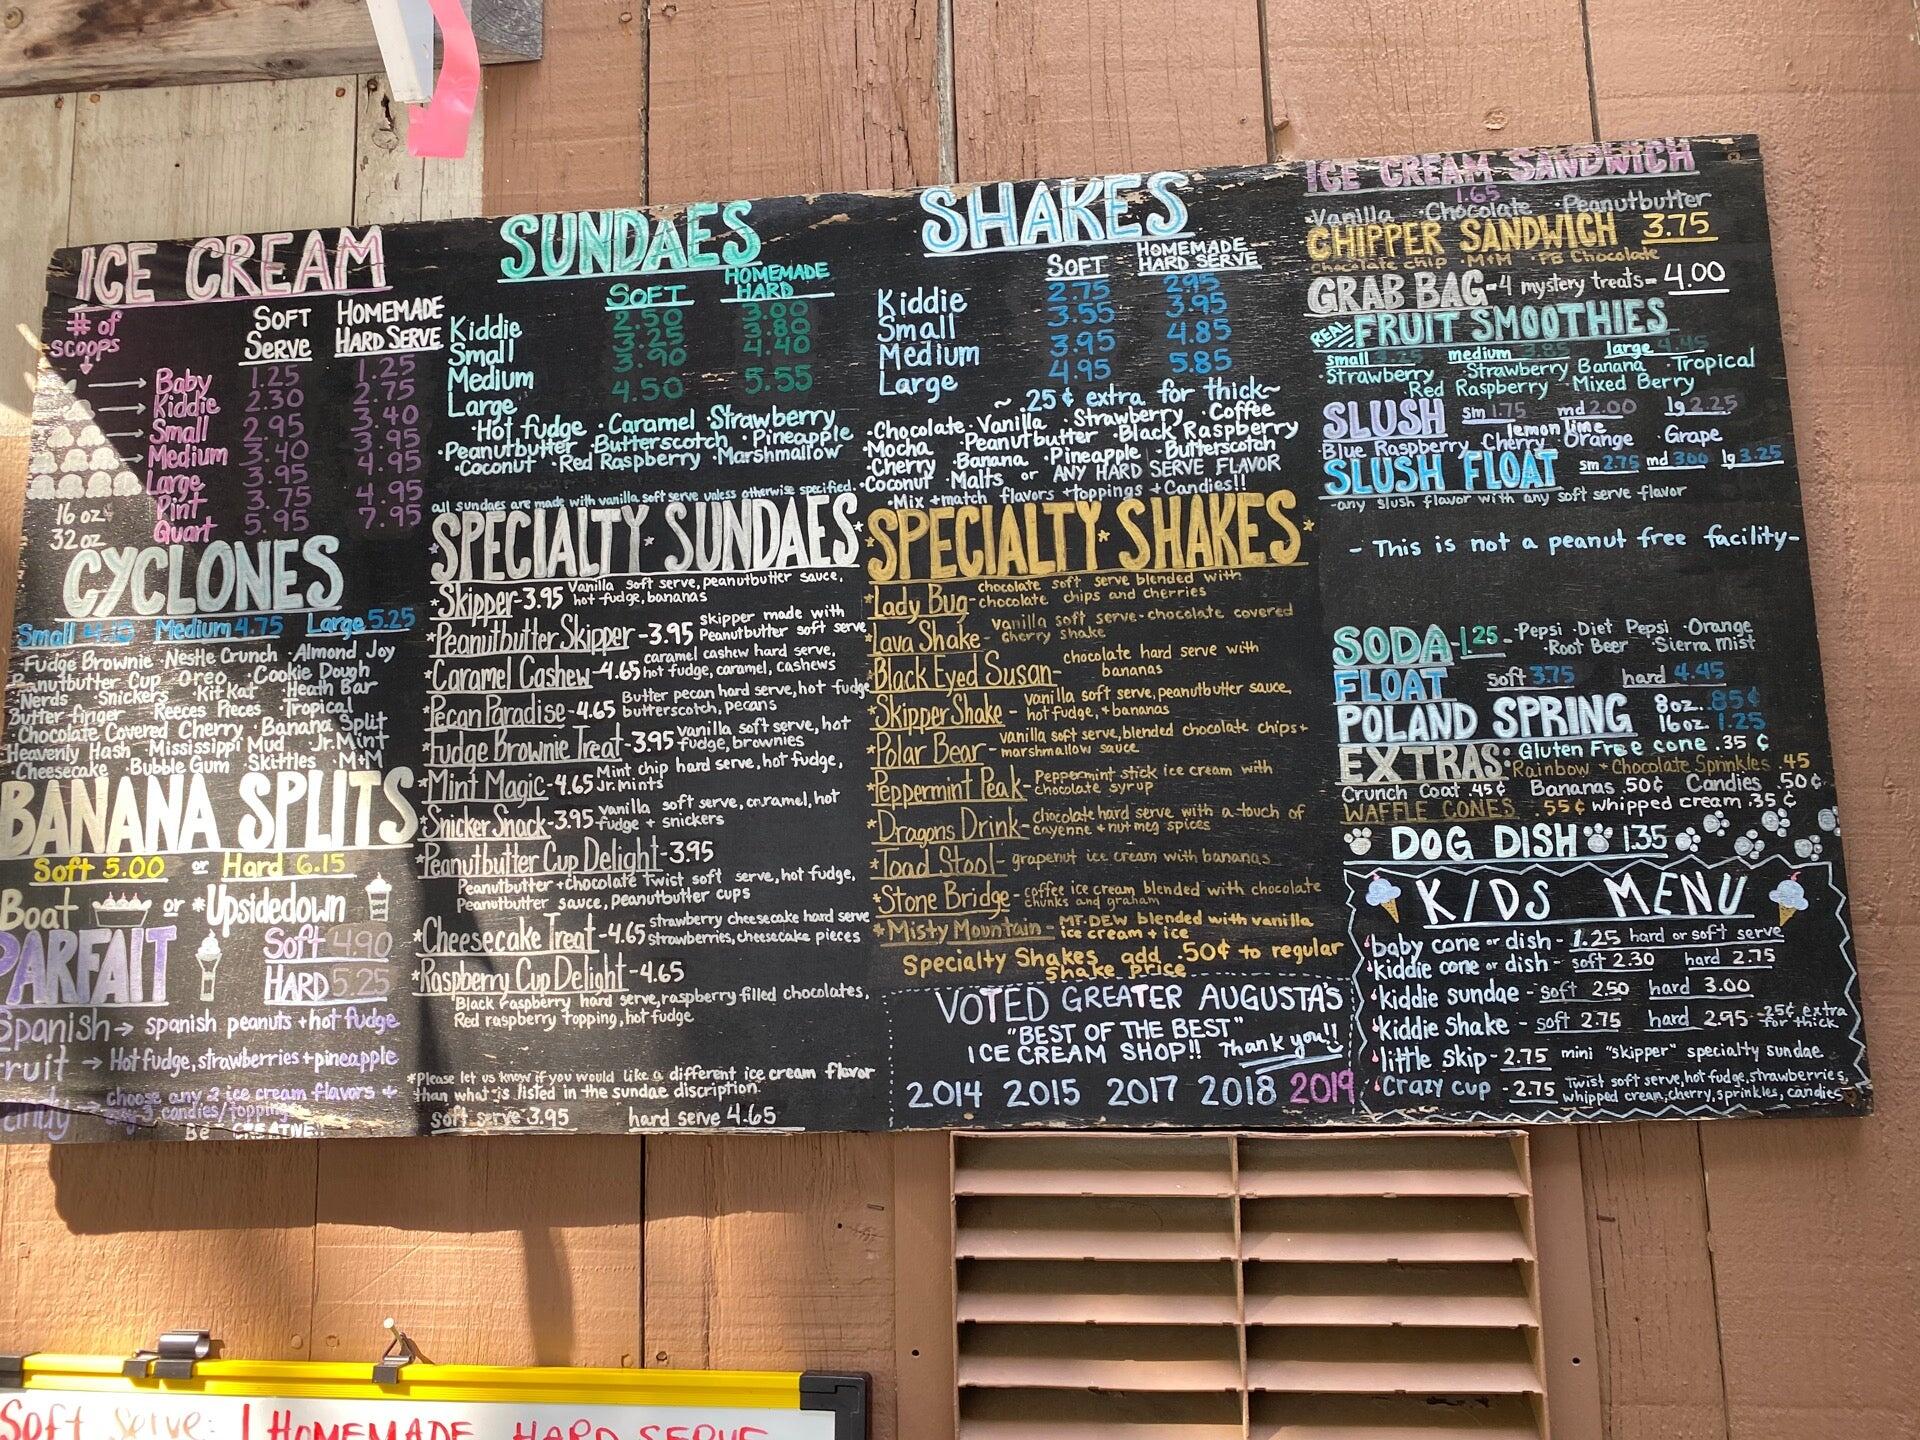 ICE CREAM
# of
scoops
SOFT
Serve
HOMEMADE
HARD SERVE
Baby 1.25 1.25
Kiddie 2.30 2.75
Small 2.95 3.40
Medium 3.40 3.95
Large 3.95 4.95
16 oz Pint 3.75 4.95
32 oz Quart 5.95 7.95
CYCLONES
Small Medium 4.75 Large 5.25
·Fudge Brownie ·Nestle Crunch ·Almond Joy
Peanutbutter Cup Oreo ·Cookie Dough
·Nerds ·Snickers ·Kit Kat ·Heath Bar
Butter finger Reeces Pieces ·Tropical
·Chocolate Covered Cherry ·Banana Split
Heavenly Hash ·Mississippi Mud Jr. Mint
·Cheesecake ·Bubble Gum ·Skittles ·M+M
BANANA SPLITS
Soft 5.00 or Hard 6.15
Boat or *Upsidedown
PARFAIT
Soft 4.90
HARD 5.25
Spanish → spanish peanuts + hot fudge
Fruit → Hot fudge, strawberries + pineapple
→ choose any 2 ice cream flavors +
any 3 candies/toppings
Be CREATIVE!!
SUNDAES
SOFT
HOMEMADE
HARD
Kiddie 2.50 3.00
Small 3.25 3.80
Medium 3.90 4.40
Large 4.50 5.55
·Hot fudge ·Caramel ·Strawberry
·Peanutbutter ·Butterscotch ·Pineapple
·Coconut ·Red Raspberry ·Marshmallow
all sundaes are made with vanilla soft serve unless otherwise specified.
SPECIALTY SUNDAES
*Skipper-3.95 Vanilla soft serve, peanutbutter sauce,
hot fudge, bananas
*Peanutbutter Skipper-3.95 skipper made with
Peanutbutter soft serve
*Caramel Cashew-4.65 caramel cashew hard serve,
hot fudge, caramel, cashews
*Pecan Paradise-4.65 Butter pecan hard serve, hot fudge
butterscotch, pecans
*Fudge Brownie Treat-3.95 vanilla soft serve, hot
fudge, brownies
*Mint Magic-4.65 Mint chip hard serve, hot fudge,
Jr. mints
*Snicker Snack-3.95 vanilla soft serve, caramel, hot
fudge + snickers
*Peanutbutter Cup Delight-3.95
Peanutbutter + chocolate Twist soft serve, hot fudge,
Peanutbutter sauce, peanutbutter cups
*Cheesecake Treat-4.65 strawberry cheesecake hard serve
strawberries, cheesecake pieces
*Raspberry Cup Delight-4.65
Black raspberry hard serve, raspberry filled chocolates,
Red raspberry topping, hot fudge
*Please let us know if you would like a different ice cream flavor
than what is listed in the sundae discription.
soft serve 3.95 hard serve 4.65
SHAKES
SOFT
HOMEMADE
HARD SERVE
Kiddie 2.75 2.95
Small 3.55 3.95
Medium 3.95 4.85
Large 4.95 5.85
~ 25¢ extra for thick~
·Chocolate ·Vanilla ·Strawberry ·Coffee
·Mocha ·Peanutbutter ·Black Raspberry
·Cherry ·Banana ·Pineapple ·Butterscotch
·Coconut ·Malts or ANY HARD SERVE FLAVOR
·Mix + match flavors + toppings + Candies!!
*SPECIALTY*SHAKES*
*Lady Bug-chocolate soft serve blended with
chocolate chips and cherries
*Lava Shake-vanilla soft serve-chocolate covered
cherry shake
*Black Eyed Susan-chocolate hard serve with
bananas
*Skipper Shake-vanilla soft serve, peanutbutter sauce,
hot fudge, + bananas
*Polar Bear-vanilla soft serve, blended chocolate chips+
marshmallow sauce
*Peppermint Peak-Peppermint stick ice cream with
chocolate syrup
*Dragons Drink-chocolate hard serve with a touch of
cayenne + nutmeg spices
*Toad Stool-grapenut ice cream with bananas
*Stone Bridge-coffee ice cream blended with chocolate
chunks and graham
*Misty Mountain-MT. DEW blended with vanilla
ice cream + ice
Specialty Shakes add .50¢ to regular
shake price
VOTED GREATER AUGUSTA'S
"BEST OF THE BEST"
ICE CREAM SHOP!! Thank you!!
2014 2015 2017 2018 2019
ICE CREAM SANDWICH
1.65
·Vanilla ·Chocolate ·Peanutbutter
CHIPPER SANDWICH 3.75
Chocolate chip ·M+M ·PB Chocolate
GRAB BAG-4 mystery treats-4.00
REAL FRUIT SMOOTHIES
small medium large
Strawberry Strawberry Banana ·Tropical
Red Raspberry ·Mixed Berry
SLUSH sm 1.75 md 2.00 lg 2.25
lemon lime
Blue Raspberry Cherry ·Orange ·Grape
SLUSH FLOAT sm 2.75 md 3.00 lg 3.25
-any slush flavor with any soft serve flavor
- This is not a peanut free facility-
SODA-1.25-·Pepsi ·Diet Pepsi ·Orange
·Root Beer ·Sierra Mist
FLOAT soft 3.75 hard 4.45
POLAND SPRING 8oz. .85¢
16oz. 1.25
EXTRAS: Gluten Free cone .35 ¢
Rainbow + Chocolate Sprinkles .45
Crunch Coat .45¢ Bananas .50¢ Candies .50¢
WAFFLE CONES .55¢ whipped cream .35 ¢
DOG DISH 1.35
KIDS MENU
baby cone or dish - 1.25 hard or soft serve
kiddie cone or dish - soft 2.30 hard 2.75
kiddie sundae - soft 2.50 hard 3.00
kiddie shake - soft 2.75 hard 2.95 -25¢ extra
for thick
little skip - 2.75 mini "skipper" specialty sundae
crazy cup - 2.75 Twist soft serve, hot fudge, strawberries,
whipped cream, cherry, sprinkles, candies
Soft Serve: HOMEMADE HARD SERVE